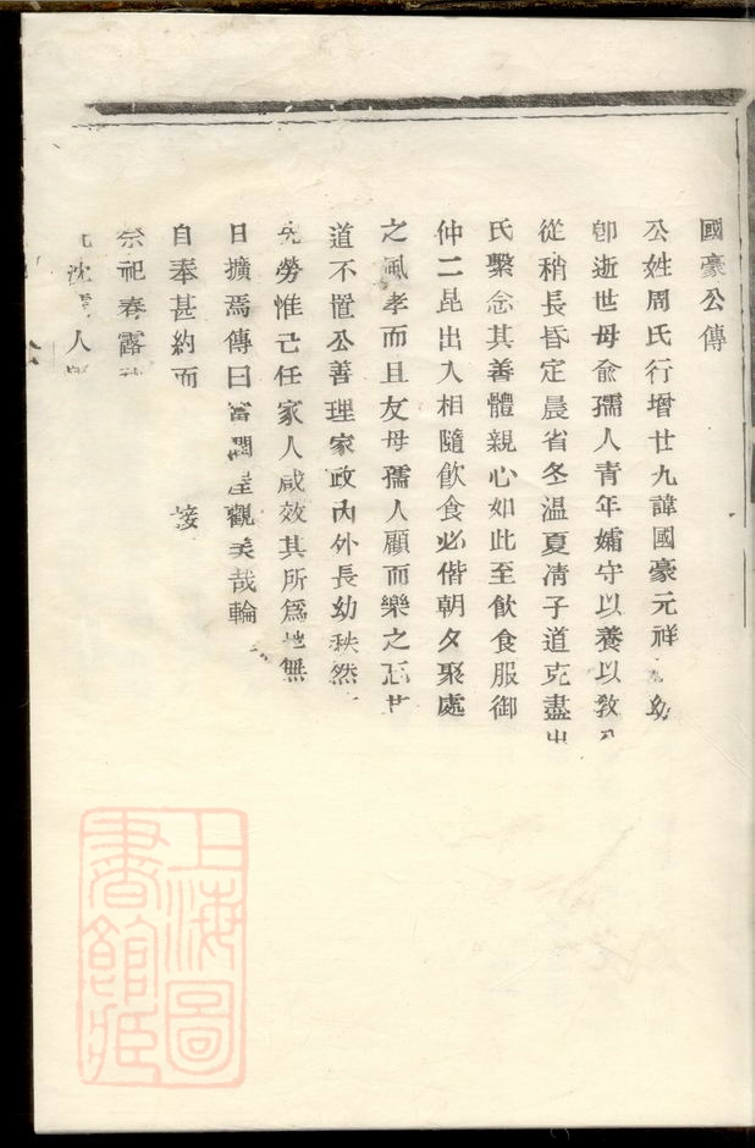 國豪公傳
公姓周氏行增廿九諱國豪元祥幼
卽逝世母俞孺人青年孀守以養以敎
從稍長昏定晨省冬温夏凊子道克盡
氏繫念其善體親心如此至飮食服御
仲二昆出入相隨飮食必偕朝夕聚處
之風孝而且友母孺人顧而樂之
道不置公善理家政內外長幼秩然
先勞惟己任家人咸效其所爲地無
日擴焉傳曰富潤屋觀美哉輪
自奉甚約而 接
祀春露
沈 人
上海圖
書館藏